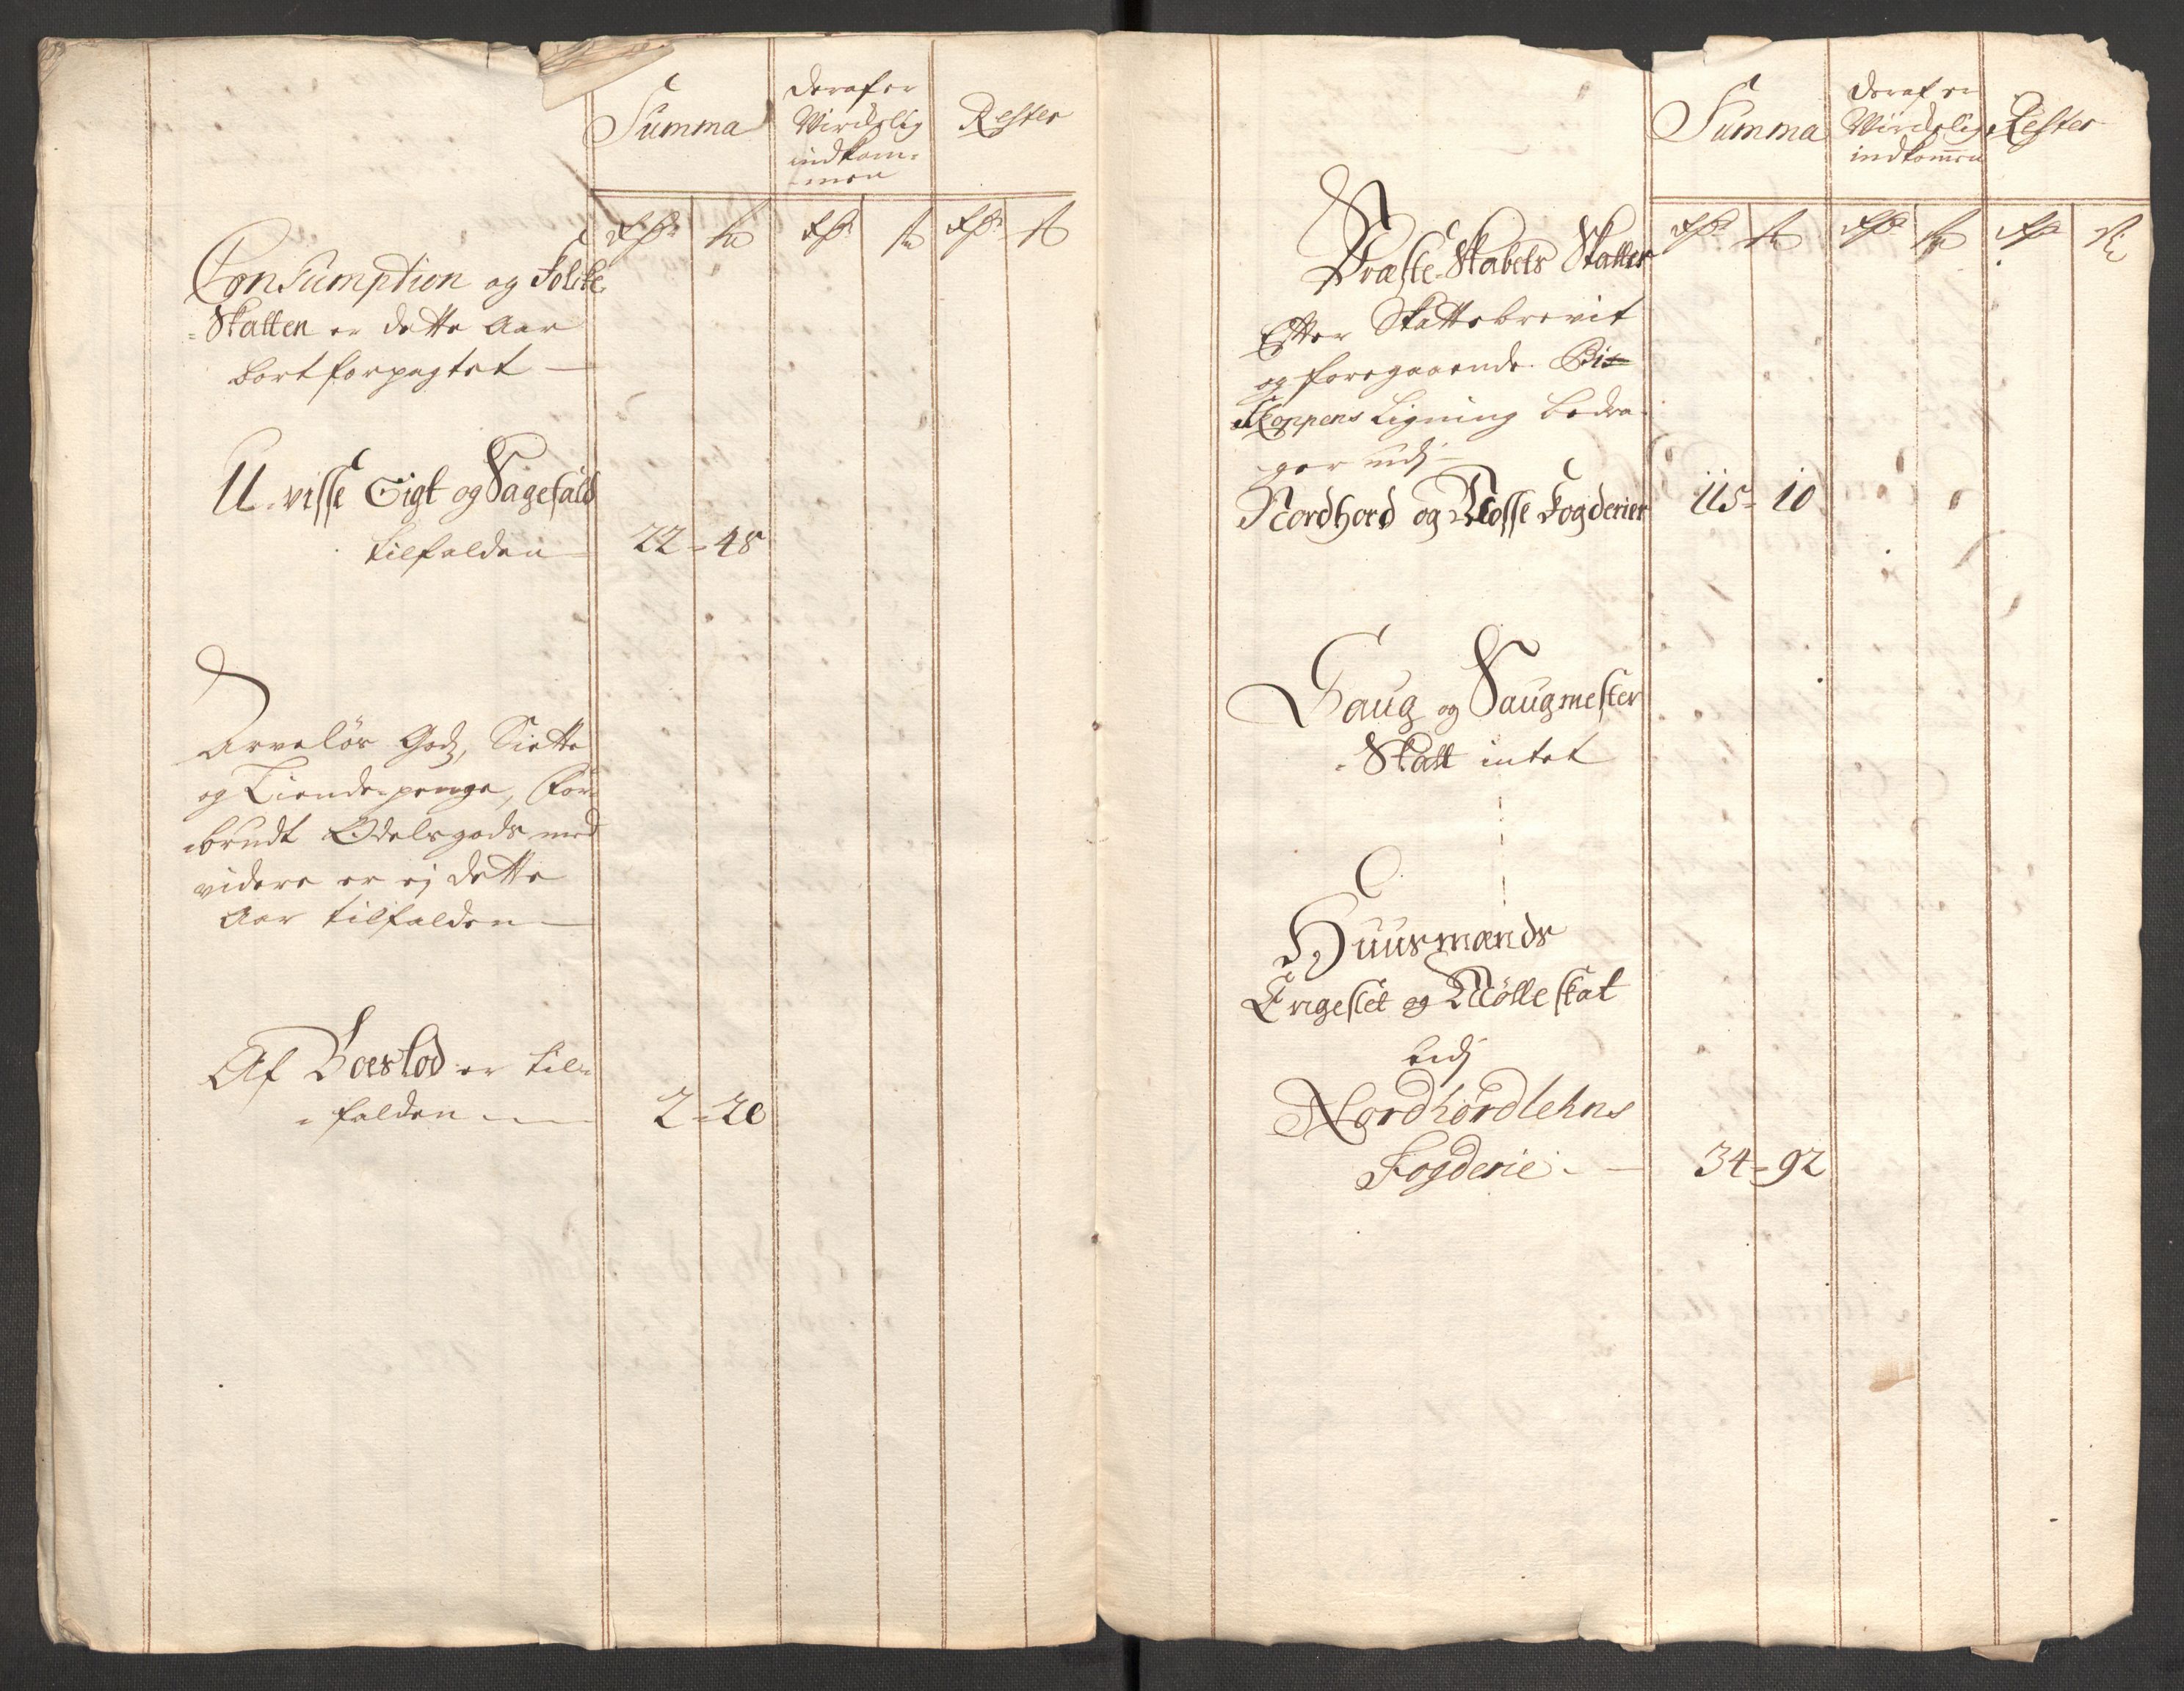 Summa
deraf er
Wirckelig
indkom-
men
Rester
Rdr ß Rdr ß Rdr ß
Consumption og Folke
=Skatten er dette Aar
bortforpagtet —
U-visse Sigt og Sagefald
tilfalden — 22 - 48
Arveløs Godz, Siette
og Tiende-penge, For-
=brudt Odelsgods med
videre er ej dette
Aar tilfalden —
Af Boeslod er til-
=falden — 2 - 20
Summa
deraf er
Wirckelig
indkommen
Rester
Rdr ß Rdr ß Rdr ß
Præste-Skabets Skatter
Efter Skattebrevit
og foregaaende Bis-
=koppens Ligning bedra-
ger udj
Nordhord og Wosse Fogderier 115 - 10
Saug og Saugmester
-Skatt intet
Huusmænds
Engeslet og Mølleskat
udj
Nordhordlehns
Fogderie - — 34 - 92